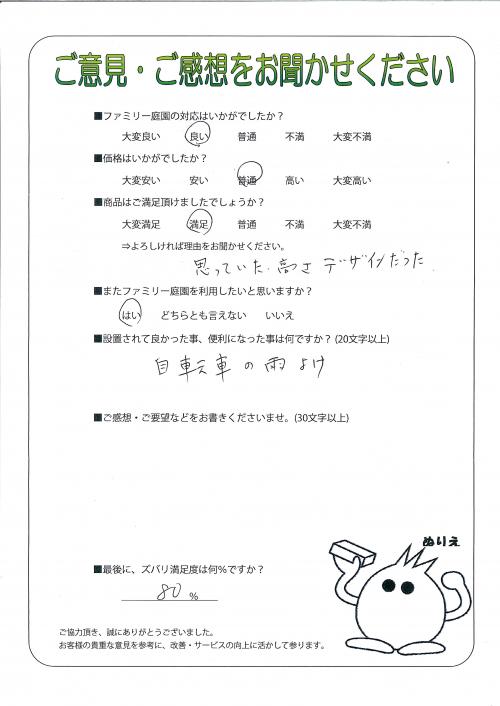 ご意見・ご感想をお聞かせください
■ファミリー庭園の対応はいかがでしたか？
大変良い 良い 普通 不満 大変不満
■価格はいかがでしたか？
大変安い 安い 普通 高い 大変高い
■商品はご満足頂けましたでしょうか？
大変満足 満足 普通 不満 大変不満
⇒よろしければ理由をお聞かせください。
思っていた高さデザインだった
■またファミリー庭園を利用したいと思いますか？
はい どちらとも言えない いいえ
■設置されて良かった事、便利になった事は何ですか？(20文字以上)
自転車の雨よけ
■ご感想・ご要望などをお書きくださいませ。(30文字以上)
ぬりえ
■最後に、ズバリ満足度は何%ですか？
80 %
ご協力頂き、誠にありがとうございました。
お客様の貴重な意見を参考に、改善・サービスの向上に活かして参ります。